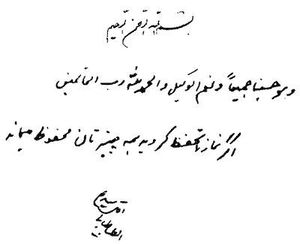 بسم الله الرحمن الرحیم
و هو حسبنا جمیعاً و نعم الوکیل و الحمد لله رب العالمین
اگر نماز را حفظ کردید همه چیزتان محفوظ میماند